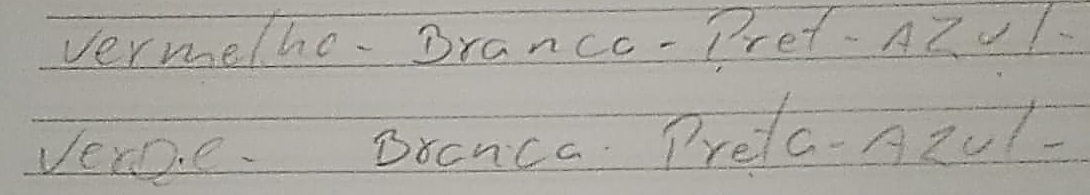 Vermelho - Branco - Pret - AZul -
VerDe - Branca - Preta - AZul -